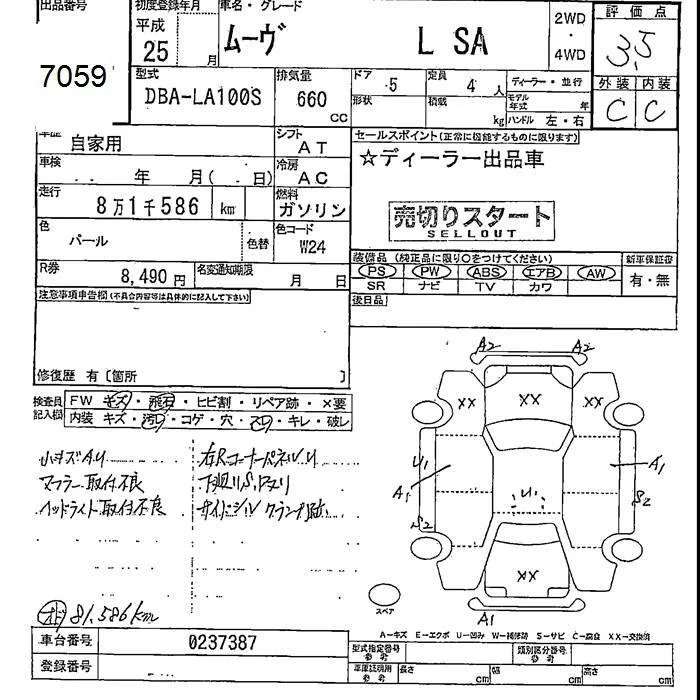 出品番号
7059
初度登録年月
平成
25 月
車名・グレード
ムーヴ L SA
2WD
・
4WD
評価点
3.5
外装 内装
C C
型式
DBA-LA100S
排気量
660 cc
ドア 5
定員 4 人
形状
積載 kg
ディーラー・並行
モデル年式 年
ハンドル 左・右
車歴 自家用
シフト AT
車検 年 月( 日)
冷房 AC
走行 8万1千586 km
燃料 ガソリン
色 パール 色替
色コード W24
R券 8,490円
名変通知期限 月 日
セールスポイント(正常に機能するものに限ります)
☆ディーラー出品車
売切りスタート
SELLOUT
装備品 (純正品に限り○をつけてください)
新車保証書
PS PW ABS エアB AW
有・無
SR ナビ TV カワ
後日品
注意事項申告欄(不具合内容等は具体的に記入して下さい)
修復歴 有〔箇所 〕
検査員記入欄
FW キズ・飛石・ヒビ割・リペア跡・×要
内装 キズ・汚れ・コゲ・穴・スレ・キレ・破レ
小キズAU
マフラー取付不良
ヘッドライト取付不良
右RコーナーパネルU
下廻りS,ロスリ
サイドシル クランプ跡
オド 81,586km
A2 A2
XX XX XX
U1 A1
A1 U1
S2 S2
XX
A1
スペア
A―キズ E―エクボ U―凹み W―補修跡 S―サビ C―腐食 XX―交換済
車台番号 0237387
登録番号
型式指定番号 参考
類別区分番号 参考
車庫証明用 参考
長さ cm
幅 cm
高さ cm